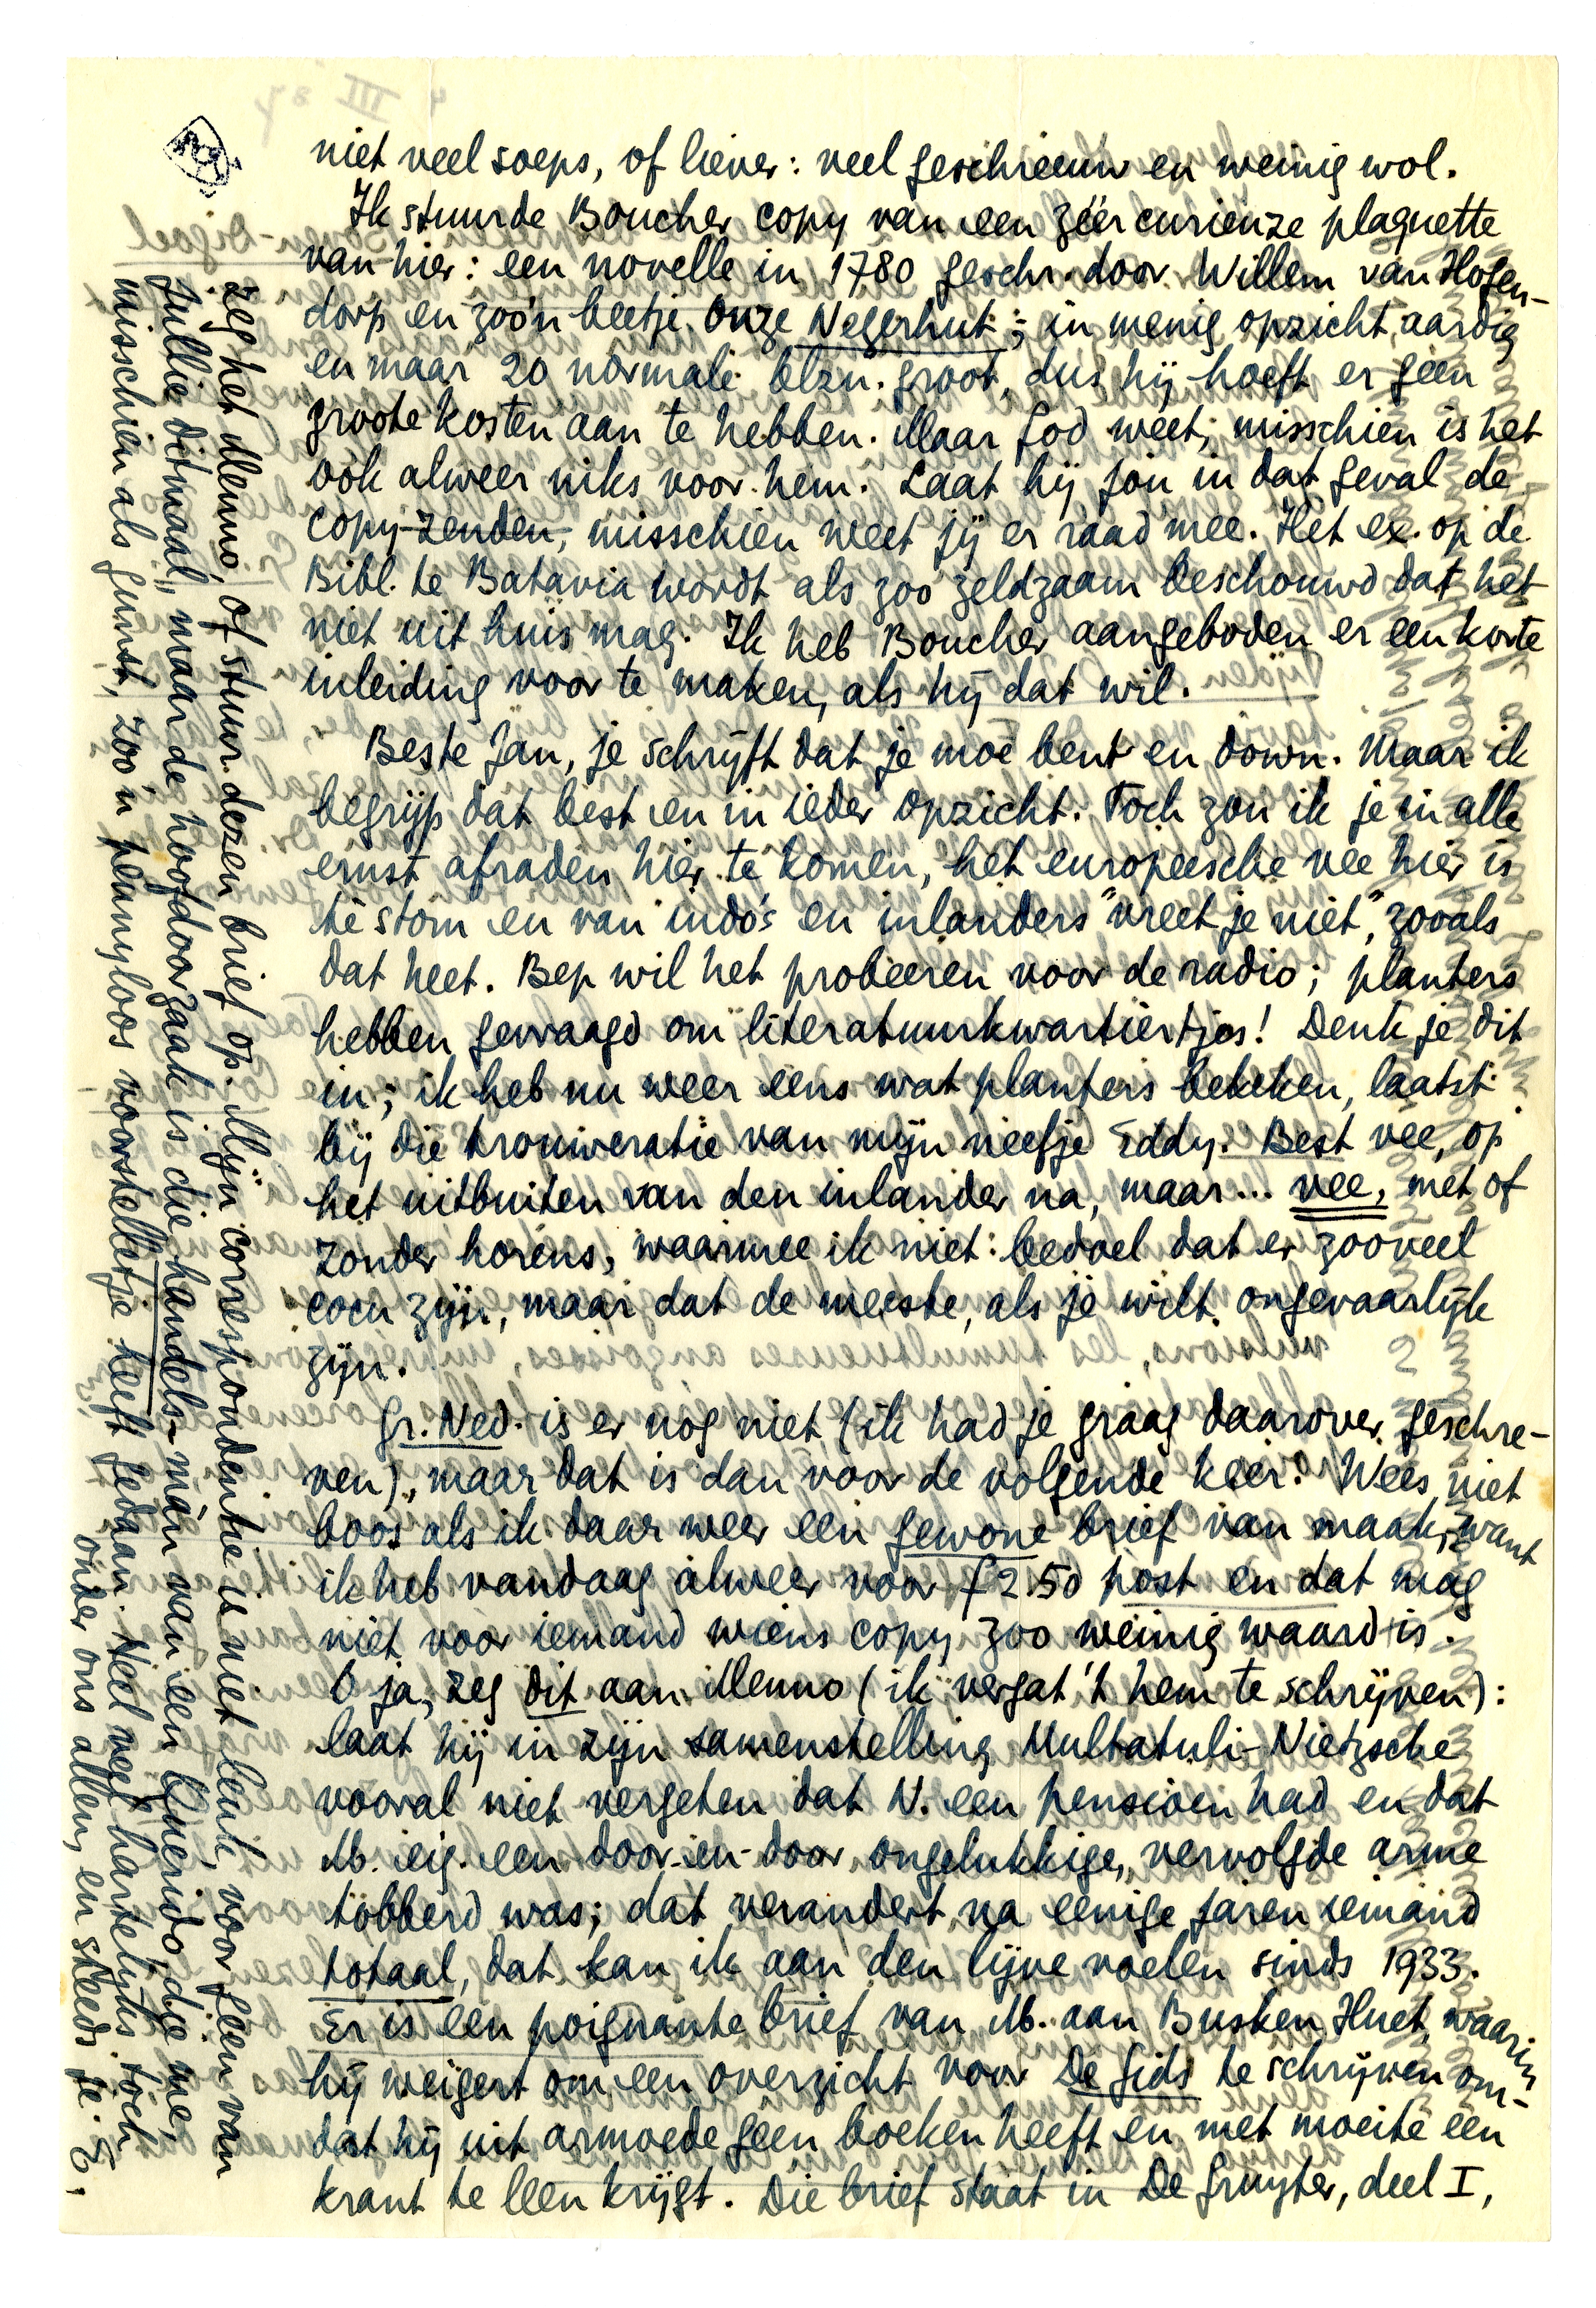 niet veel soeps, of liever: veel geschreeuw en weinig wol.
Ik stuurde Boucher copy van een zéér curieuze plaquette
van hier: een novelle in 1780 geschr. door Willem van Hogen-
dorp en zoo'n beetje Onze Negerhut; in menig opzicht aardig
en maar 20 normale blzn. groot, dus hij hoeft er geen
groote kosten aan te hebben. Maar God weet, misschien is het
óók alweer niks voor hem. Laat hij jou in dat geval de
copy zenden, misschien weet jij er raad mee. Het ex. op de
Bibl. te Batavia wordt als zoo zeldzaam beschouwd dat het
niet uit huis mag. Ik heb Boucher aangeboden er een korte
inleiding voor te maken, als hij dat wil.
Beste Jan, je schrijft dat je moe bent en down. Maar ik
begrijp dat best en in ieder opzicht. Toch zou ik je in alle
ernst afraden hier te komen, het europeesche vee hier is
té stom en van indo's en inlanders "vreet je niet", zooals
dat heet. Bep wil het probeeren voor de radio; planters
hebben gevraagd om literatuurkwartiertjes! Denk je dit
in; ik heb nu weer eens wat planters bekeken, laatst
bij die trouweratie van mijn neefje Eddy. Best vee, op
het uitbuiten van den inlander na, maar... vee, met of
zonder horens, waarmee ik niet bedoel dat er zooveel
cocu zijn, maar dat de meeste, als je wilt, ongevaarlijk
zijn.
Gr. Ned. is er nog niet (ik had je graag daarover geschre-
ven), maar dat is dan voor de volgende keer. Wees niet
boos als ik daar weer een gewone brief van maak, want
ik heb vandaag alweer voor f 2.50 post en dat mag
niet voor iemand wiens copy zoo weinig waard is.
O ja, zeg dit aan Menno (ik vergat 't hem te schrijven):
laat hij in zijn samenstelling Multatuli-Nietzsche
vooral niet vergeten dat N. een pensioen had en dat
M. eig. een door-en-door ongelukkige, vervolgde arme
tobberd was; dat verandert na eenige jaren iemand
totaal, dat kan ik aan den lijve voelen sinds 1933.
Er is een poignante brief van M. aan Busken Huet, waarin
hij weigert om een overzicht voor De Gids te schrijven om-
dat hij uit armoede geen boeken heeft en met moeite een
krant te leen krijgt. Die brief staat in De Gruyter, deel I,
zeg het Menno, of stuur dezen brief op. Mijn correspondentie is niet leuk, voor geen van
jullie ditmaal, maar de hoofdoorzaak is die handels-man van een Querido, die me,
misschien als gunst, zoo'n pennyloos voorstelletje heeft gedaan. Veel veeg hartelijks toch
onder ons allen, en steeds je E.